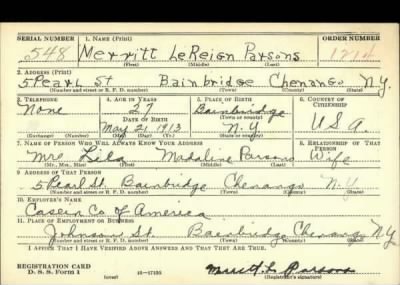 SERIAL NUMBER 1. NAME (Print) ORDER NUMBER
548 Merritt LeReign Parsons
(First) (Middle) (Last)
2. ADDRESS (Print)
5 Pearl St Bainbridge Chenango N.Y.
(Number and street or R. F. D. number) (Town) (County) (State)
3. TELEPHONE 4. AGE IN YEARS 5. PLACE OF BIRTH 6. COUNTRY OF CITIZENSHIP
None 27 Bainbridge
DATE OF BIRTH (Town or county)
May 2, 1913 N.Y. U.S.A.
(Exchange) (Number) (Mo.) (Day) (Yr.) (State or country)
7. NAME OF PERSON WHO WILL ALWAYS KNOW YOUR ADDRESS 8. RELATIONSHIP OF THAT PERSON
Mrs Lila Madaline Parsons Wife
(Mr., Mrs., Miss) (First) (Middle) (Last)
9. ADDRESS OF THAT PERSON
5 Pearl St. Bainbridge Chenango N.Y.
(Number and street or R. F. D. number) (Town) (County) (State)
10. EMPLOYER'S NAME
Casein Co of America
11. PLACE OF EMPLOYMENT OR BUSINESS
Johnson St. Bainbridge Chenango N.Y.
(Number and street or R. F. D. number) (Town) (County) (State)
I AFFIRM THAT I HAVE VERIFIED ABOVE ANSWERS AND THAT THEY ARE TRUE.
REGISTRATION CARD
D. S. S. Form 1 (over) 16-17105 Merritt L. Parsons
(Registrant's signature)